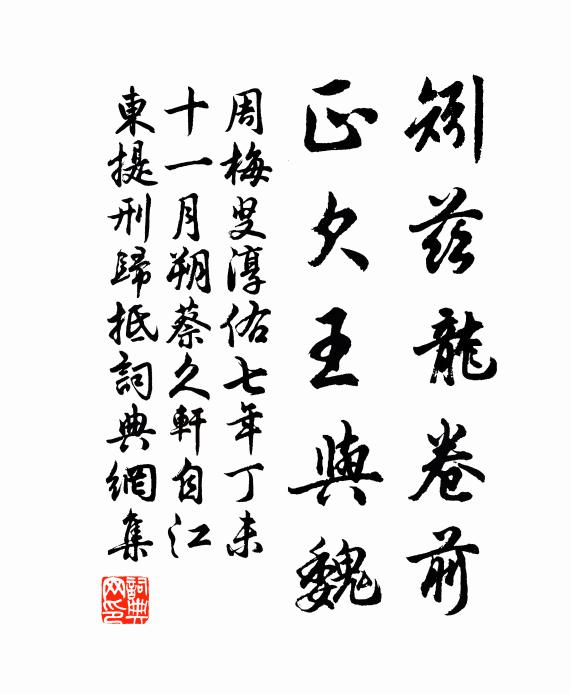 矧茲龍卷前
正欠王與魏
周梅叟淳佑七年丁未
十一月朔蔡久軒自江
東提刑歸抵詞典網集
詞典
网印